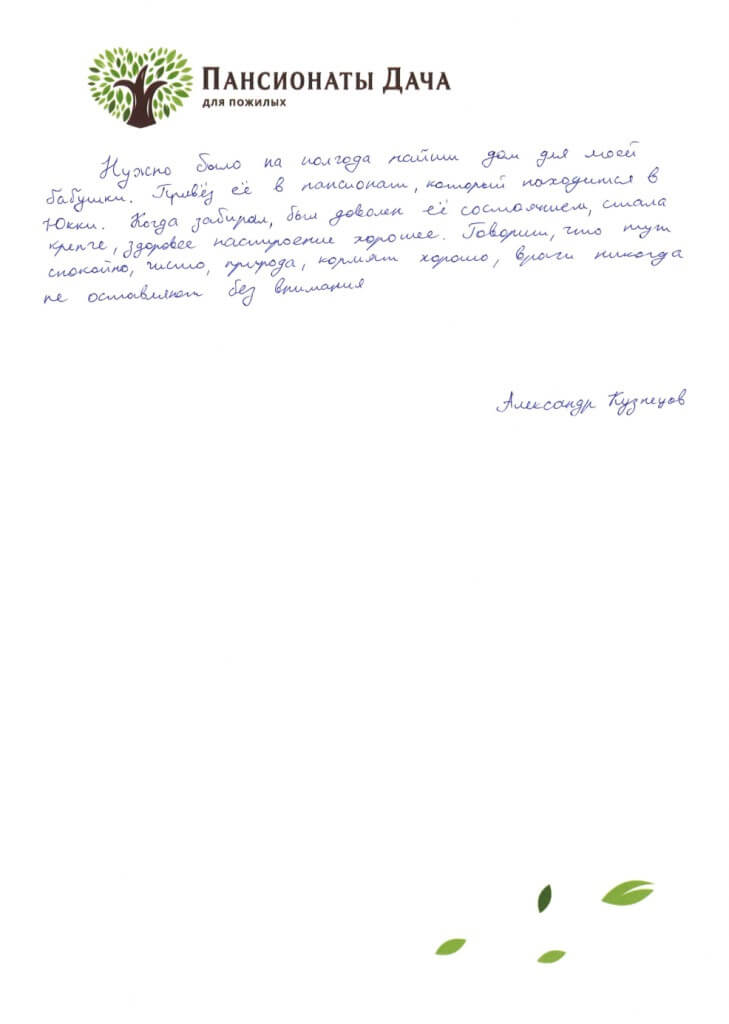 ПАНСИОНАТЫ ДАЧА
ДЛЯ ПОЖИЛЫХ
Нужно было на полгода найти дом для моей
бабушки. Привёз её в пансионат, который находится в
Юкки. Когда забирал, был доволен её состоянием, стала
крепче, здоровее настроение хорошее. Говорит, что тут
спокойно, чисто, природа, кормят хорошо, врачи никогда
не оставляют без внимания
Александр Кузнецов